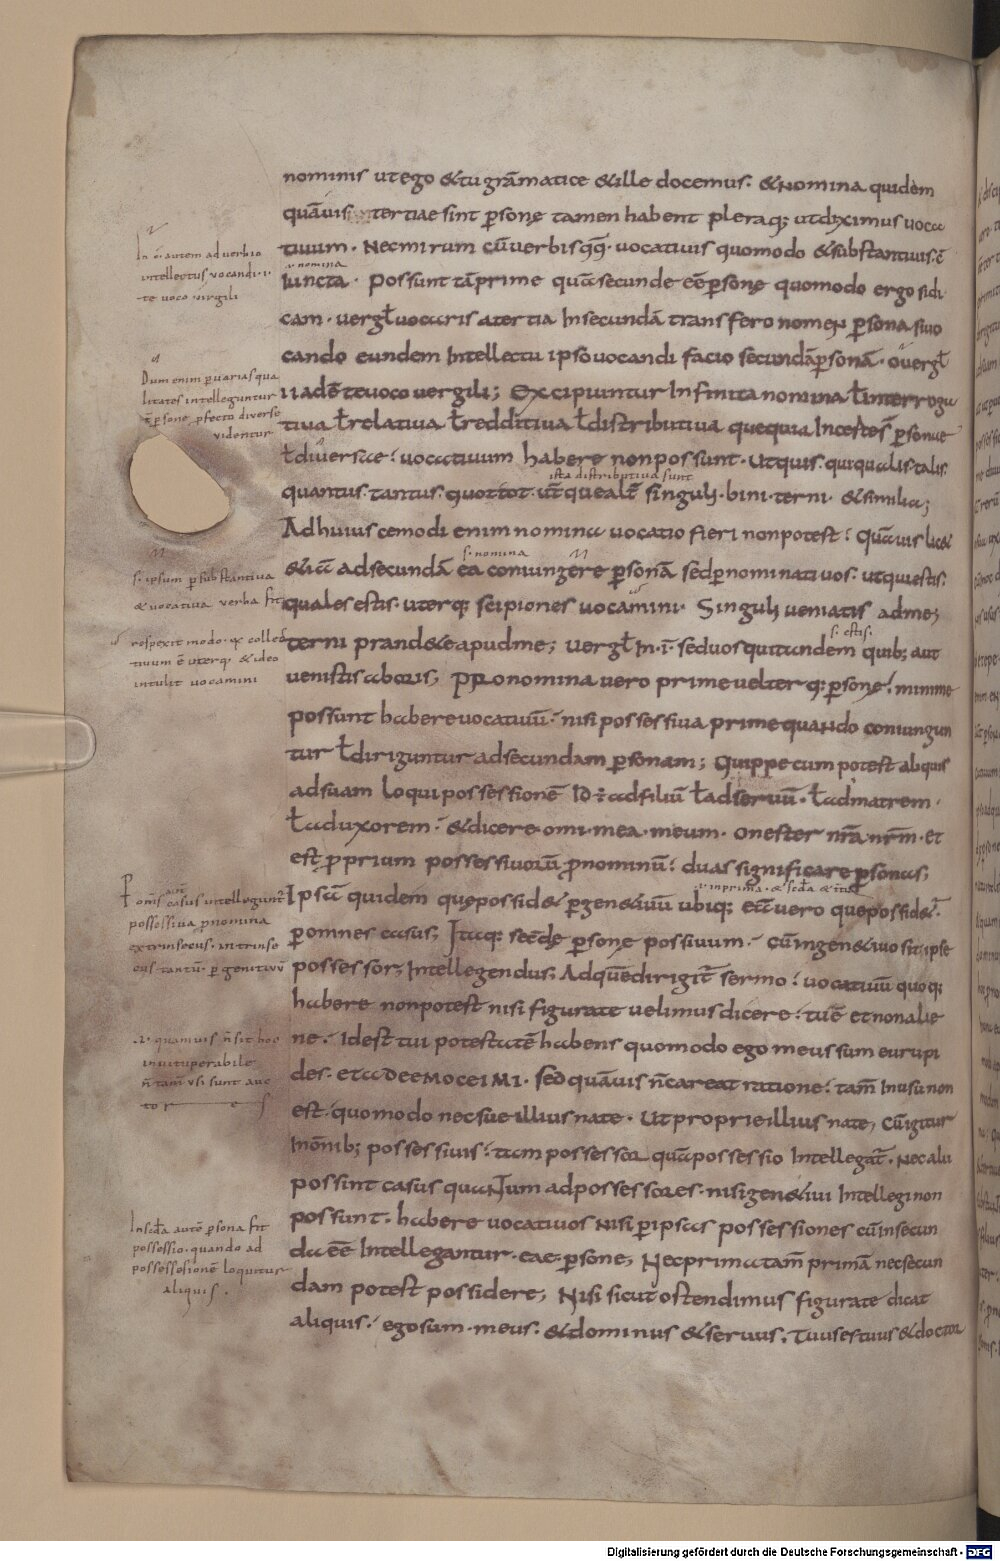 nominis ut ego &tu grāmatice &ille docemus. &Nomina quidem
quāuis tertiae sint psonę tamen habent pleraq; utdiximus uoca
tiuum. Necmirum cūuerbisqq. uocatiuis quomodo &substantiuis ē
s. nomina
iuncta. Possunt tāprime quāsecunde eēpsonę quomodo ergo sidi
cam. uergł uocaris atertia Insecundā transfero nomen psona siuo
cando eundem Intellectu ipsouocandi facio secundāpsonā. ouergł
ii adē teuoco uergili; Excipiuntur Infinita nomina ł interroga
tiua ł relatiua ł redditiua ł distributiua quequia Incertes psonae
ł diuersae. uocatiuum habere nonpossunt. Utquis. quiqualis. talis.
ista distributiua sunt
quantus. tantus. quot. tot. singuli. bini. terni. &similia;
Adhuiuscemodi enim nomina uocatio fieri nonpotest. Quāuis lic&
s. nomina
&iā adsecundā ea coniungere psonā sedpnominatiuos. utquiestis.
qualesestis. uterq; scipiones uocamini. Singuli ueniatis adme;
s. estis.
terni prand&e apudme; uergł In. i. seduosquitandem quib; aut
uenistis aboris; PRonomina uero prime uelterq; psonę. minime
possunt habereuocatiuū. nisi possessiua prime quando coniungun
tur ł diriguntur adsecundam psonam; Quippe cum potest aliquis
adsuam loqui possessionē Id÷ adfiliū ł adseruū. ł admatrem.
ł aduxorem. &dicere omi. mea. meum. onoster nrā nrm. et
est pprium possessiuorū pnominū. duas significare psonas;
i. inprima. & scda &
Ipsā quidem quępossid& pgen&iuū ubiq; eā uero quepossid&.
pomnes casus; Itaq; secde psonę possiuum. cūingen&iuo sit. ipse
possessor, Intellegendus, Adquēdirigit sermo. uocatiuū quoq;
habere nonpotest nisi figurate uelimus dicere. tuē etnonalie
ne. Idest tui potestatē habens quomodo ego meus sum euripi
des. Sed quāuis ñcareat ratione. tam Inusu non
est. quomodo necsue illius nate. Ut proprie illius nate, Cūigitur
Inōnib; possessiuis. tam possessor quāpossessio Intellegat. Nec alii
possint casus quantum adpossessores. nisi gen&iui Intellegi non
possunt. habere uocatiuos Nisi pipsas possessiones cūinsecun
da eē Intellegantur. psone, Necprima tam primā necsecun
dam potest possidere, Nisi sicut ostendimus figurate dicat
aliquis. egosum. meus. &dominus &seruus. Tuusestuus &doctor
In ē. autem aduerbio
intellectus uocandi. i.
te uoco uirgili
Dum enim puarias qua
litates intelleguntur
psone pfecto diuerse
uidentur
s. ipsum psubstantiua
&uocatiua uerba fit
respexit modo. & collec
tiuum ē uterq. &ideo
intulit uocamini
omīs casus intellegunt
possessiua pnomina
extrinsecus. intrinse
cus tantū. p genitiuū
quamuis ñ sit hoc
inuituperabile
ñ tam usi sunt auc
tores
Inscda autē psona fit
possessio. quando ad
possessionē loquitur
aliquis.
Digitalisierung gefördert durch die Deutsche Forschungsgemeinschaft - DFG